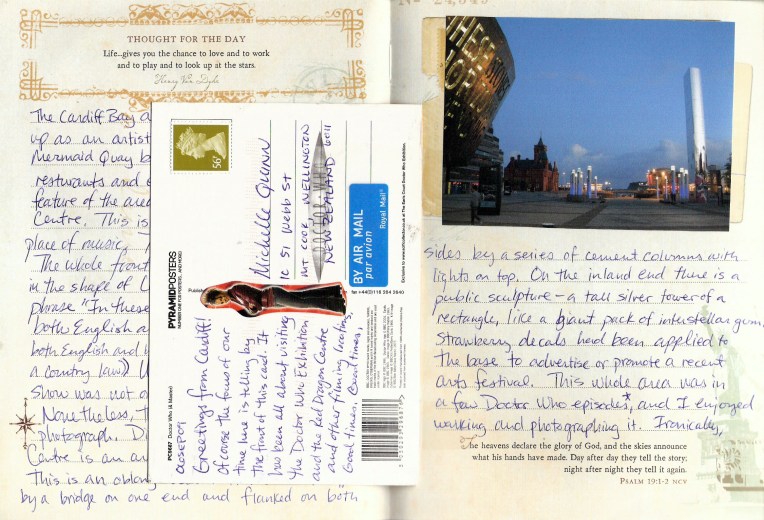 THOUGHT FOR THE DAY
Life...gives you the chance to love and to work
and to play and to look up at the stars.
Henry Van Dyke
The Cardiff Bay a
up as an artist
Mermaid Quay b
resturants and
feature of the area
Centre. This is
place of music,
The whole front
in the shape of
phrase "In these
both English a
both English and
a country law)
show was not o
Nonetheless, T
photograph. Di
Centre is an a
This is an oblong
by a bridge on one end and flanked on both
56
Michelle Quinn
1C 51 Webb St
Mt Cook, Wellington
New Zealand 6011
DOCTOR WHO
BY AIR MAIL
par avion
Royal Mail
PYRAMIDPOSTERS
Publis
fax +44(0)116 264 2640
PC0687 Doctor Who (& Master)
Greetings from Cardiff!
Of course the focus of our
time here is telling by
the front of this card. I
have been all about visiting
the Doctor Who Exhibition
and the Red Dragon Centre
and other filming locations.
Good times, Good times,
sides by a series of cement columns with
lights on top. On the inland end there is a
public sculpture – a tall silver tower of a
rectangle, like a giant pack of interstellar gum.
Strawberry decals had been applied to
the base to advertise or promote a recent
arts festival. This whole area was in
a few Doctor Who episodes*, and I enjoyed
walking and photographing it. Ironically,
The heavens declare the glory of God, and the skies announce
what his hands have made. Day after day they tell the story;
night after night they tell it again.
PSALM 19:1-2 NCV